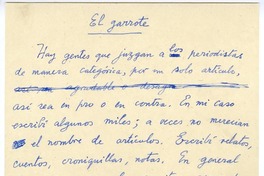 El garrote
Hay gentes que juzgan a los periodistas
de manera categórica, por un solo artículo,
así sea en pro o en contra. En mi caso
escribí algunos miles; a veces no merecían
el nombre de artículos. Escribí relatos,
cuentos, croniquillas, notas. En general